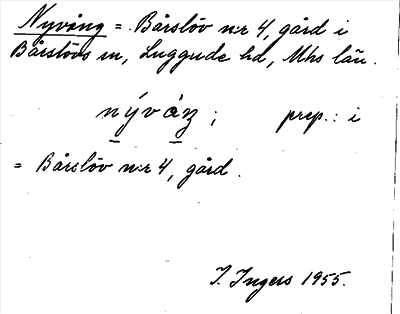 Nyvång = Bårslöv n:r 4, gård i
Bårslövs sn, Luggude hd, Mhs län.
nývá̱ŋ ; prep.: i
= Bårslöv n:r 4, gård.
I. Ingers 1955.